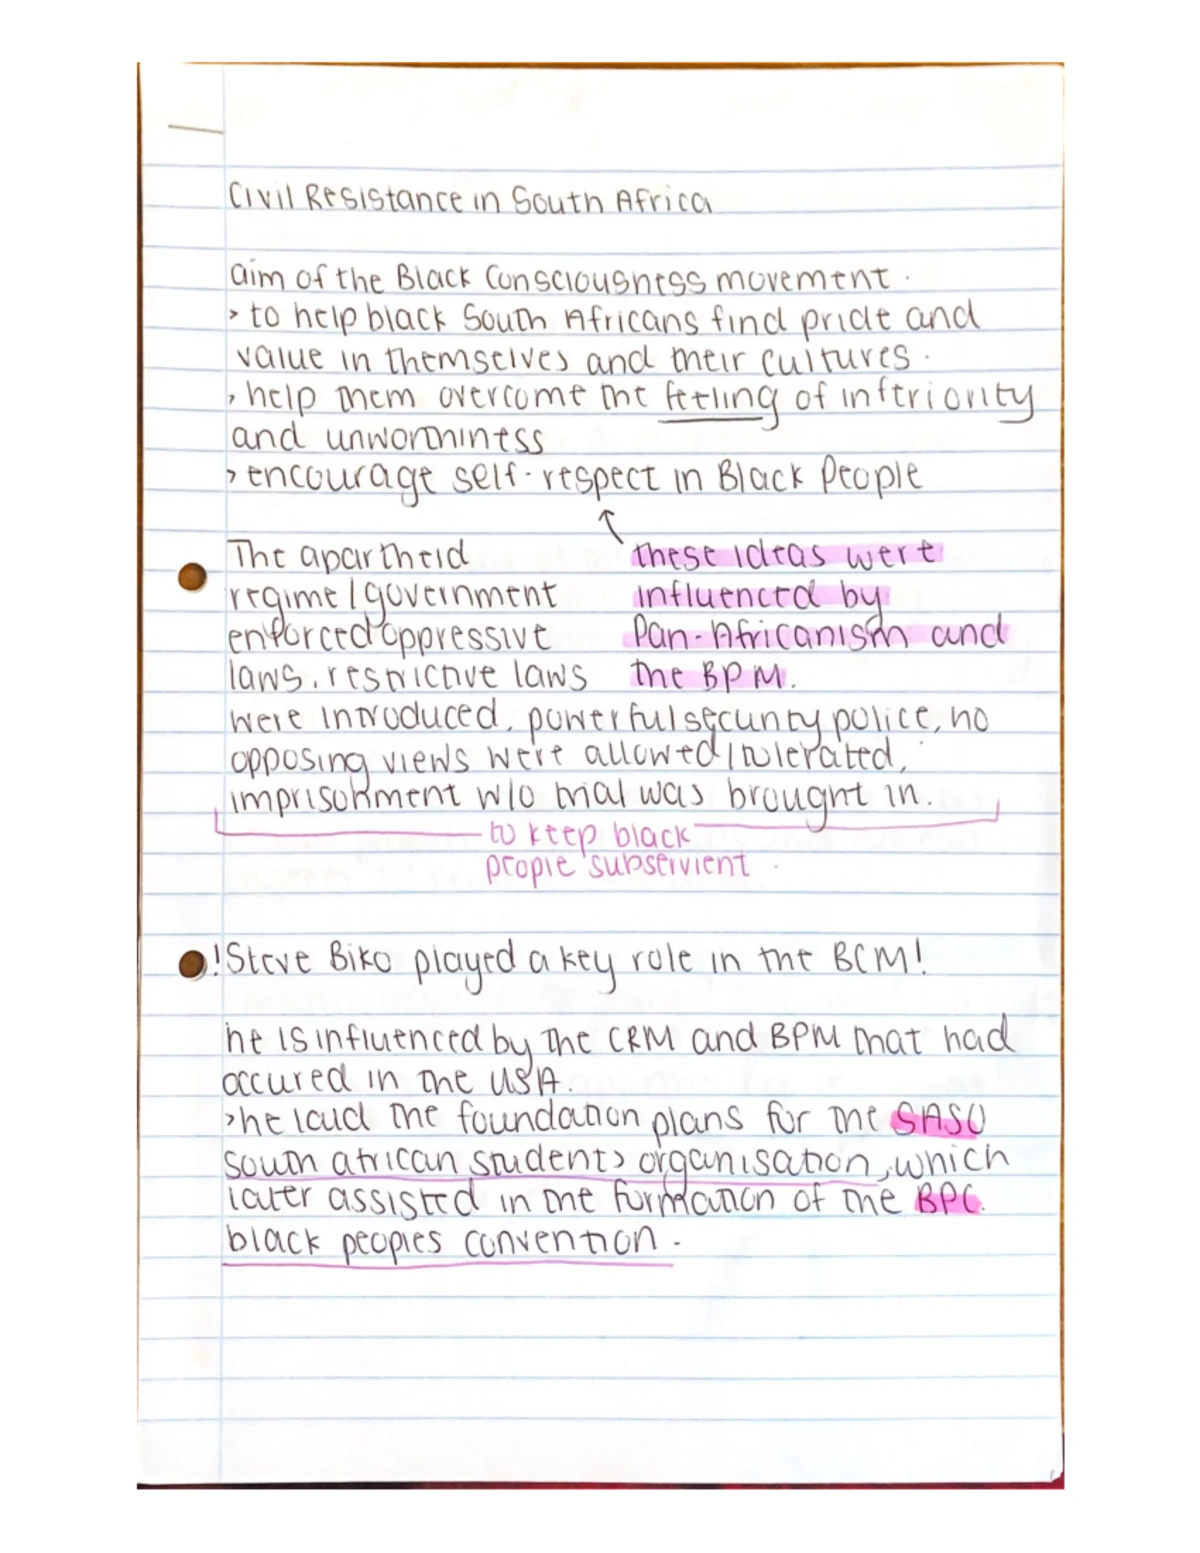 Civil Resistance in South Africa
aim of the Black Consciousness movement.
> to help black South Africans find pride and
value in themselves and their cultures.
> help them overcome the feeling of inferiority
and unworthiness
> encourage self-respect in Black People
↑
The apartheid
regime/government
enforced oppressive
laws, restrictive laws
these ideas were
influenced by
Pan-Africanism and
the BPM.
were introduced, powerful security police, no
opposing views were allowed/tolerated,
imprisonment w/o trial was brought in.
to keep black
people subservient
! Steve Biko played a key role in the BCM!
he is influenced by the CRM and BPM that had
occured in the USA.
> he laid the foundation plans for the SASO
south african students organisation, which
later assisted in the formation of the BPC.
black peoples convention.